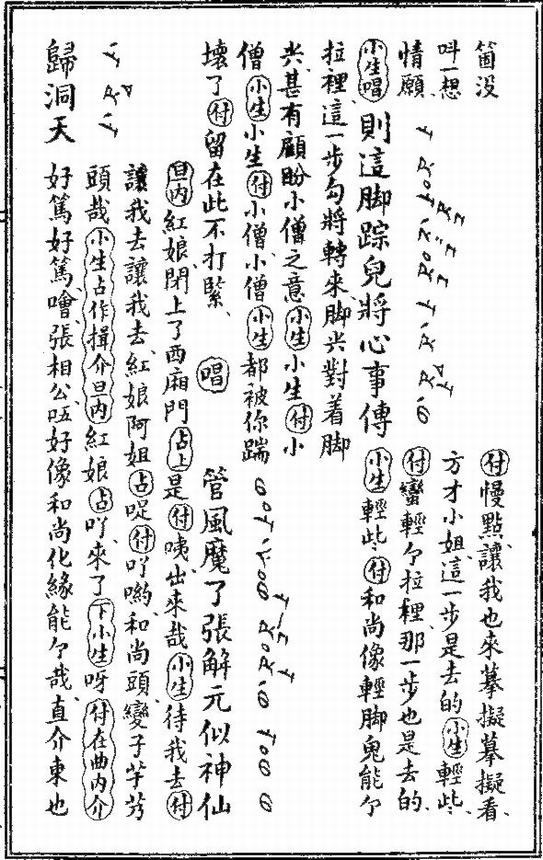 箇没
呌一想
情願、
小生唱則這脚踪兒將心事傳
付慢點、讓我也來摹擬摹擬看、
方才小姐這一步是去的小生輕些、
付蠻輕个拉裡、那一步也是去的、
小生輕些、付和尚像輕脚鬼能个
拉裡、這一步勾將轉來、脚尖對着脚
尖、甚有顧盼小僧之意小生小生付小
僧小生小生付小僧小僧小生都被你踹
壞了付留在此不打緊、
唱管風魔了張解元似神仙
歸洞天
旦内紅娘閉上了西廂門占上是付咦出來哉小生待我去付
讓我去讓我去、紅娘阿姐占啶付吖喲、和尚頭變子芋艿
頭哉小生占作揖介旦内紅娘占吖來了下小生呀付在曲内介
好篤好篤噲張相公唔好像和尚化緣能个哉、直介東也